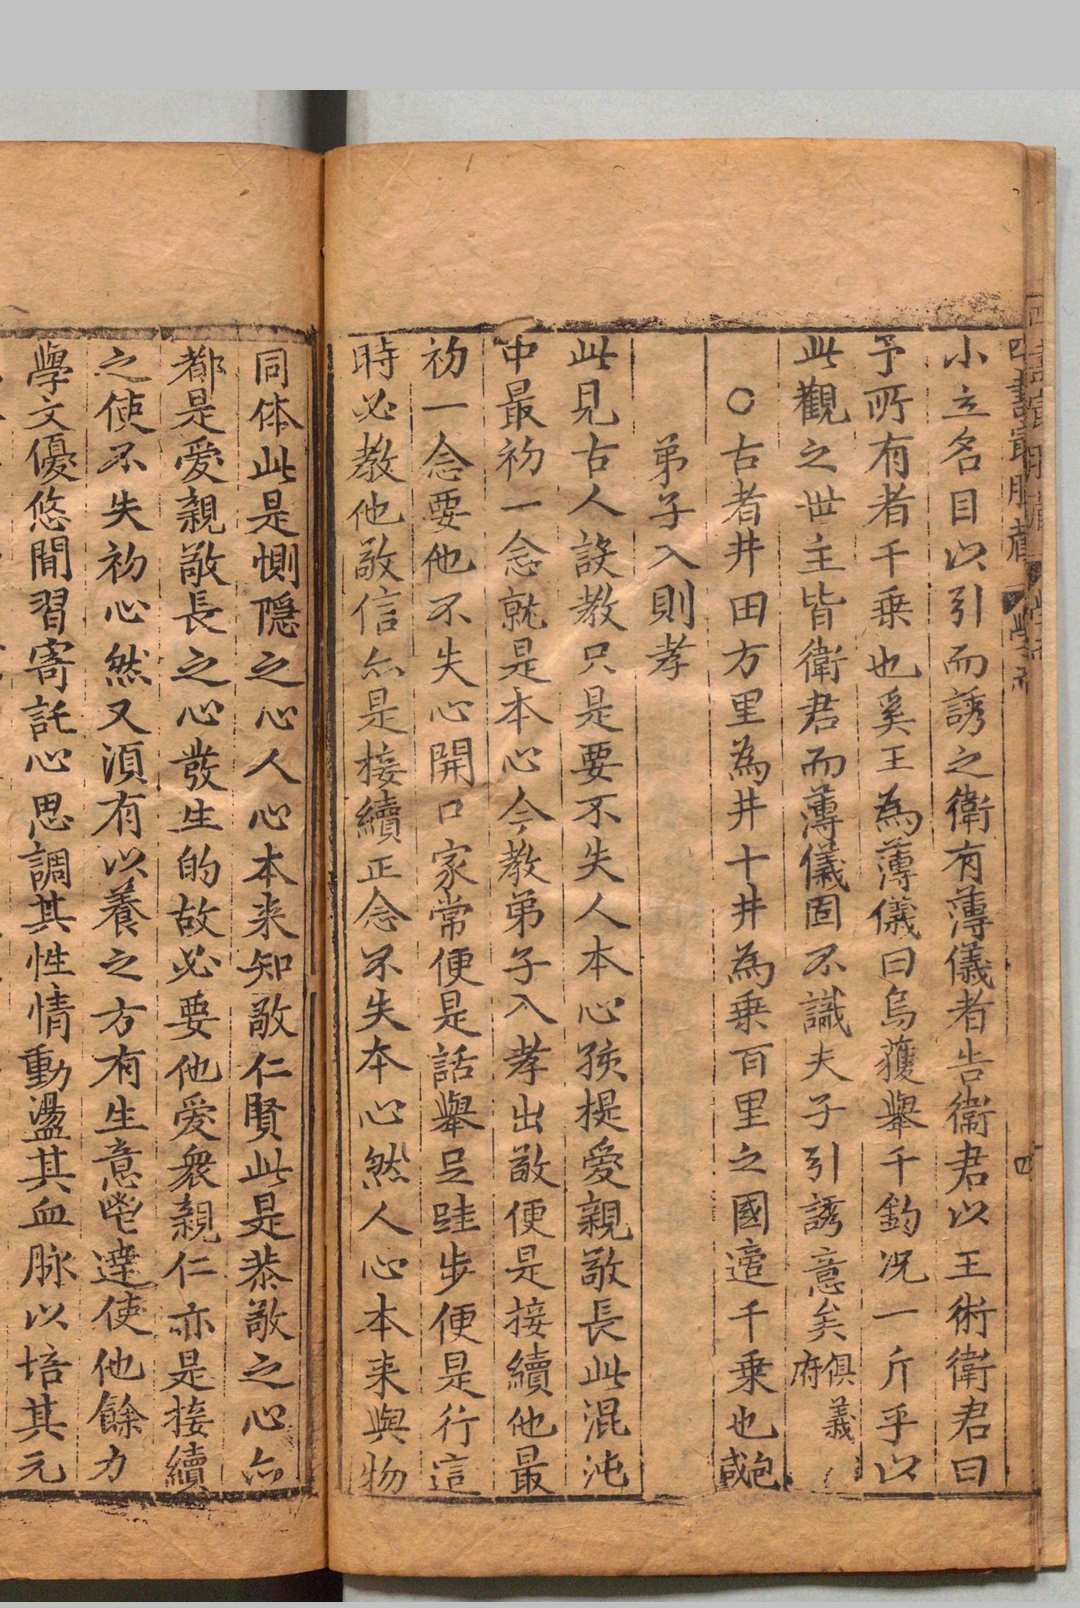 小立名目以引而誘之衛有薄儀者告衛君以王術衛君曰
予所有者千乗也奚王為薄儀曰烏獲舉千鈞况一斤乎以
此觀之世主皆衛君而薄儀固不識夫子引誘意矣俱義府
○古者井田方里為井十井為乗百里之國適千乗也包咸
弟子入則孝
此見古人設教只是要不失人本心孩提愛親敬長此混沌
中最初一念就是本心今教弟子入孝出敬便是接續他最
初一念要他不失心開口家常便是話舉足跬步便是行這
時必教他敬信亦是接續正念不失本心然人心本来與物
同体此是惻隱之心人心本来知敬仁賢此是恭敬之心亦
都是愛親敬長之心發生的故必要他愛衆親仁亦是接續
之使不失初心然又湏有以養之方有生意暢達使他餘力
學文優悠間習寄託心思調其性情動盪其血脉以培其元